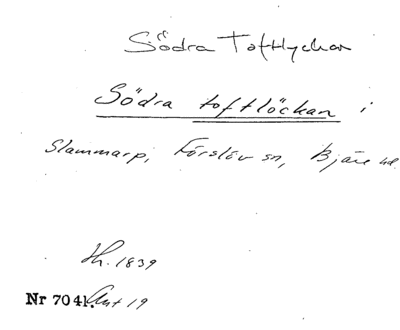 Södra Toftlyckan
Södra toftlöckan i
Slammarp, Förslöv sn, Bjäre hd.
Sh. 1839
Nr 7041. Akt 19